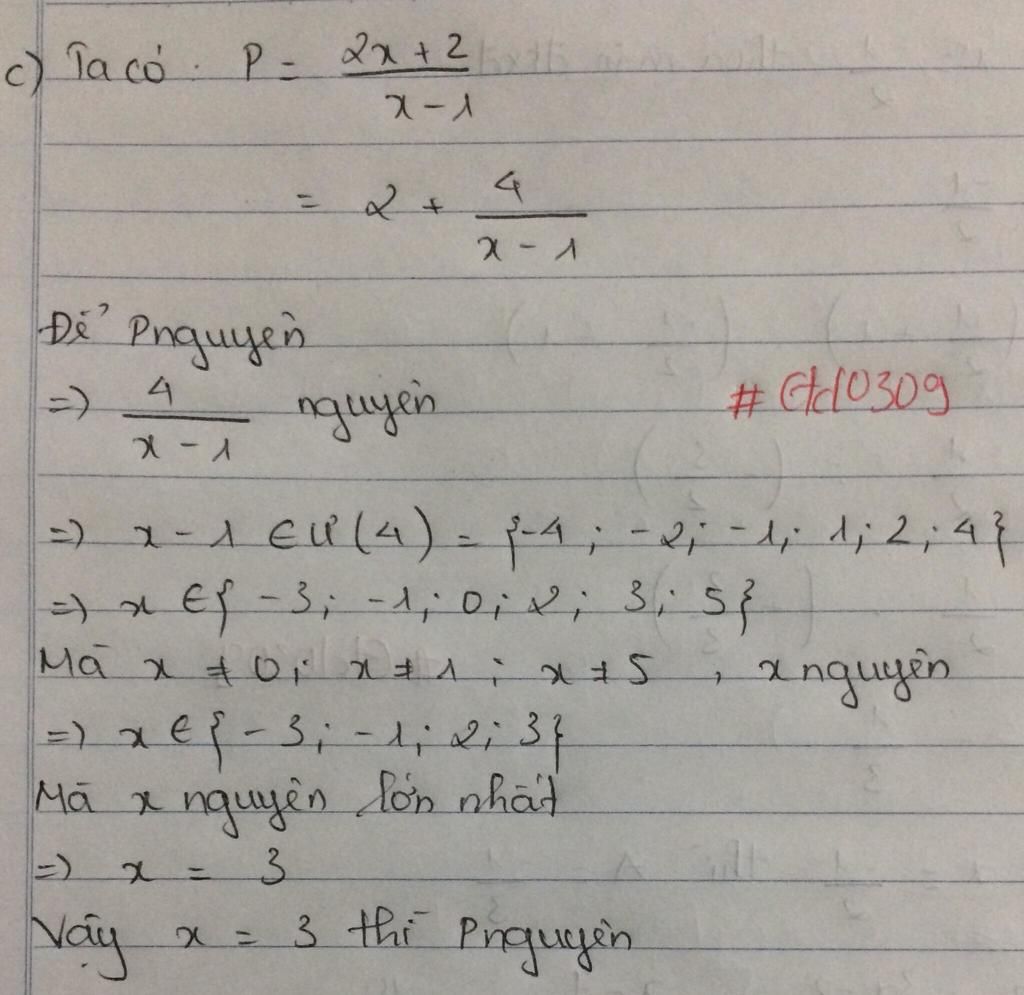 c) Ta có: P = \frac{2x+2}{x-1}
= 2 + \frac{4}{x-1}
Để P nguyên
=) \frac{4}{x-1} nguyên
# Gtd0309
=) x - 1 ∈ Ư(4) = {-4; -2; -1; 1; 2; 4}
=) x ∈ {-3; -1; 0; 2; 3; 5}
Mà x ≠ 0; x ≠ 1; x ≠ 5, x nguyên
=) x ∈ {-3; -1; 2; 3}
Mà x nguyên lớn nhất
=) x = 3
Vậy x = 3 thì P nguyên